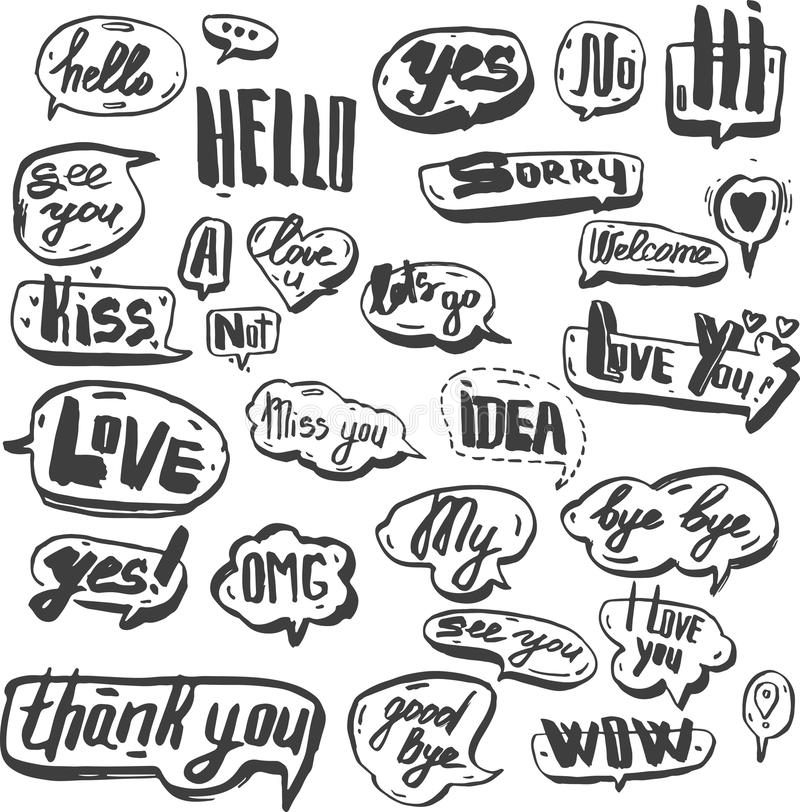 hello
...
HELLO
yes
No
Hi
see
you
SORRY
A
love
u
Welcome
Kiss
Not
let's go
LOVE YOU!
LOVE
Miss you
iDEA
yes!
OMG
My
bye bye
see you
I LOVE
you
thank you
good
bye
WOW
!